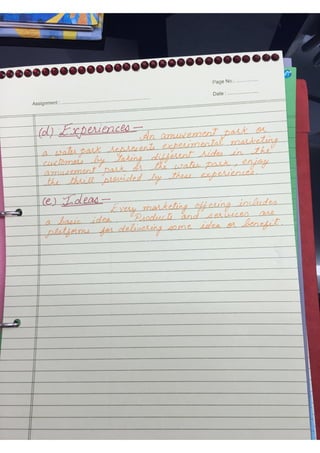 Page No.: ..............
Date : ..................
Assignment :
(d) Experiences —
An amusement park or
a water park represents experimental marketing
customers by taking different rides in the
amusement park or the water park, enjoy
the thrill provided by these experiences.
(e) Ideas —
Every marketing offering includes
a basic idea. Products and services are
platforms for delivering some idea or benefit.